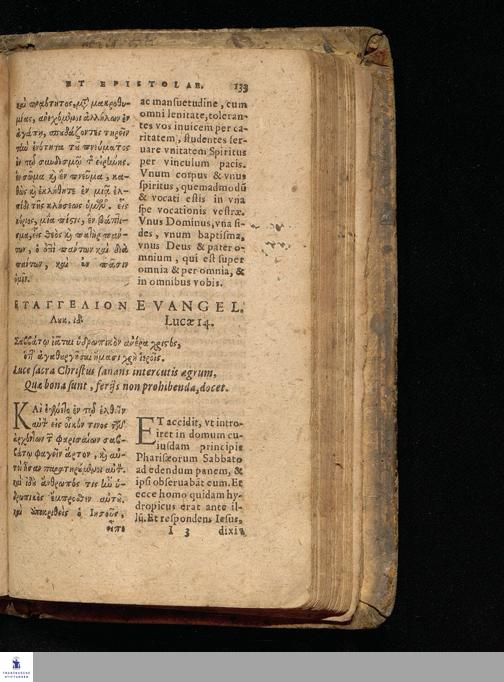 ET EPISTOLAE. 133
καὶ πραότητος, μετὰ μακροθυ-
μίας, ἀνεχόμενοι ἀλλήλων ἐν
ἀγάπῃ, σπουδάζοντες τηρεῖν
τὴν ἑνότητα τοῦ πνεύματος
ἐν τῷ συνδέσμῳ τῆς εἰρήνης.
ἓν σῶμα κὶ ἓν πνεῦμα, κα-
θὼς κὶ ἐκλήθητε ἐν μιᾷ ἐλ-
πίδι τῆς κλήσεως ὑμῶν. εἷς
κύριος, μία πίστις, ἓν βάπτισ-
μα, εἷς θεὸς κὶ πατὴρ πάν-
των, ὁ ἐπὶ πάντων καὶ διὰ
πάντων, καὶ ἐν πᾶσιν
ὑμῖν.
ac mansuetudine, cum
omni lenitate, toleran-
tes vos inuicem per ca-
ritatem, studentes ser-
uare vnitatem Spiritus
per vinculum pacis.
Vnum corpus & vnus
spiritus, quemadmodũ
& vocati estis in vna
spe vocationis vestræ.
Vnus Dominus, vna fi-
des, vnum baptisma,
vnus Deus & pater o-
mnium, qui est super
omnia & per omnia, &
in omnibus vobis.
ΕΥΑΓΓΕΛΙΟΝ EVANGEL.
Λυκ. ιδ. Lucæ 14.
Σαββάτῳ ἰᾶται ὑδρωπικὸν ἀνέρα χριστὸς,
Luce sacra Christus sanans intercutis ægrum,
Quæ bona sunt, ferijs non prohibenda, docet.
ΚΑὶ ἐγένετο ἐν τῷ ἐλθεῖν
αὐτὸν εἰς οἶκόν τινος τῶν
ἀρχόντων τῶν φαρισαίων σαβ-
βάτῳ φαγεῖν ἄρτον, κὶ αὐ-
τοὶ ἦσαν παρατηρούμενοι αὐτόν.
καὶ ἰδοὺ ἄνθρωπός τις ἦν ὑ-
δρωπικὸς ἔμπροσθεν αὐτοῦ.
καὶ ἀποκριθεὶς ὁ Ἰησοῦς,
εἶπε
ET accidit, vt intro-
iret in domum cu-
iusdam principis
Pharisæorum Sabbato
ad edendum panem, &
ipsi obseruabãt eum. Et
ecce homo quidam hy-
dropicus erat ante il-
lũ. Et respondens Iesus,
I 3 dixit